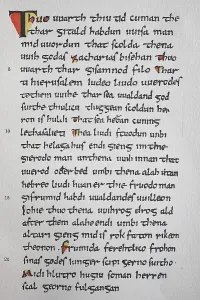 Thuo uuarth thiu tid cuman the
thar gitald habdun uuisa man
mid uuordun that scolda thena
uuih godas Zacharias bisehan Thuo
5 uuarth thar gisamnod filo Thar
te hierusalem iudeo liudo uuerodes
te them uuihe thar sea uualdand god
suithe thiulico thiggean scoldun her
ron is huldi that sea heban cuning
10 lethas lieti Thea liudi stuodun umbi
that helaga hus endi gieng im the
gierodo man an thena uuih innan that
uuerod oder bed umbi thena alah utan
hebreo liudi huan er thie fruodo man
15 gifrumid habdi uualdandes uuilleon
so hie thuo thena uuihrog drog ald
after them alahe endi umbi thena
altari gieng mid is rokfaton rikeon
theonon frumida ferehtlico frohon
20 sinas godes iungerscipi gerno suitho
Mid hluttro hugiu so man herren
scal georno fulgangan